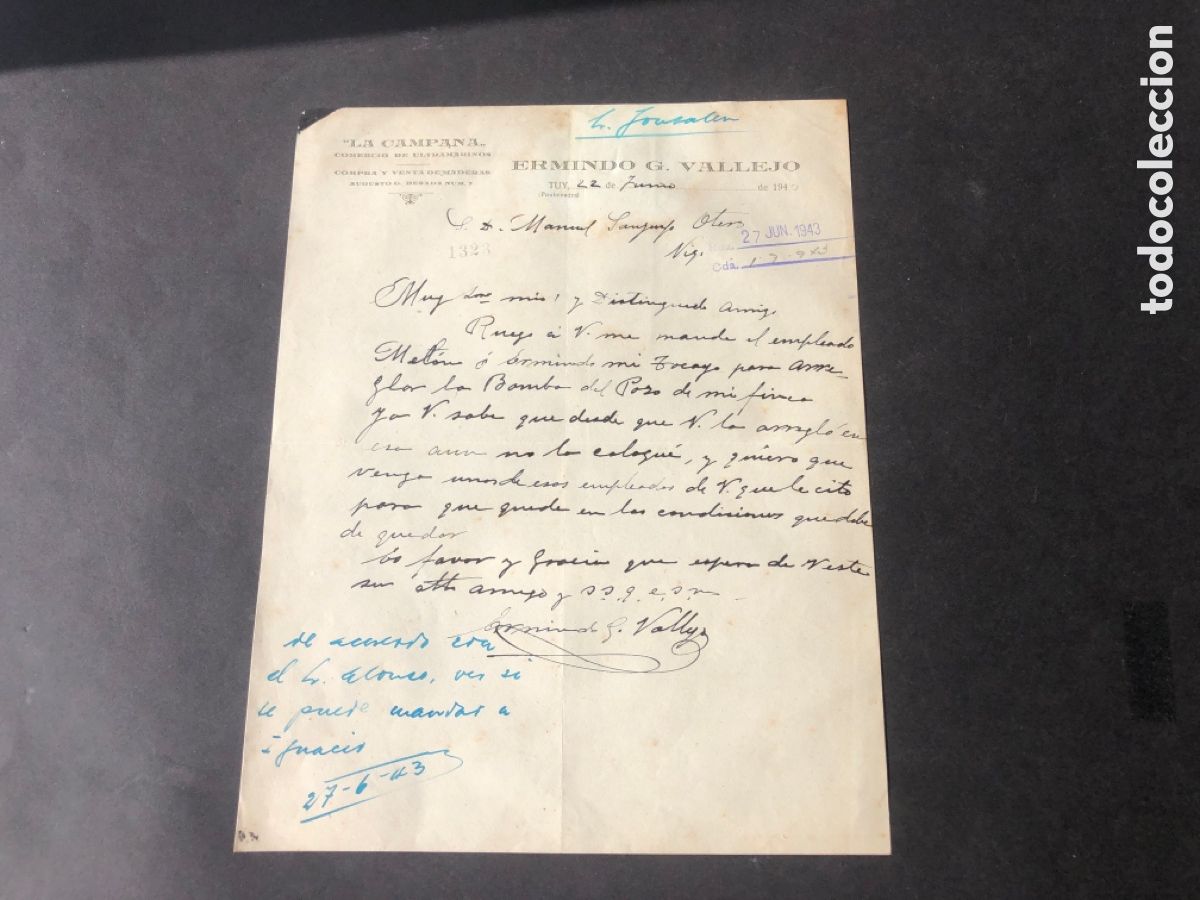 "LA CAMPANA"
COMERCIO DE ULTRAMARINOS
COMPRA Y VENTA DE MADERAS
AUGUSTO G. BESADA NUM. 7
ERMINDO G. VALLEJO
TUY, 22 de Junio de 194
(Pontevedra)
S. D. Manuel Otero
Vigo
1323
27 JUN. 1943
Cda.
Muy Snr mio! y Distinguido Amigo
Ruego á V. me mande el empleado
ó Ermindo mi Tocayo para arre-
glar la Bomba del Pozo de mi finca
ya V. sabe que desde que V. la arregló en
esa aun no la coloqué, y quiero que
venga uno de esos empleados de V. que le cito
para que quede en las condiciones que debe
de quedar
favor y Gracia que espera de V este
su atto amigo y s.s.q.e.s.m
Ermindo G. Vallejo
de acuerdo con
el Sr. Alonso, ver si
se puede mandar a
Ignacio
27-6-43
todocoleccion